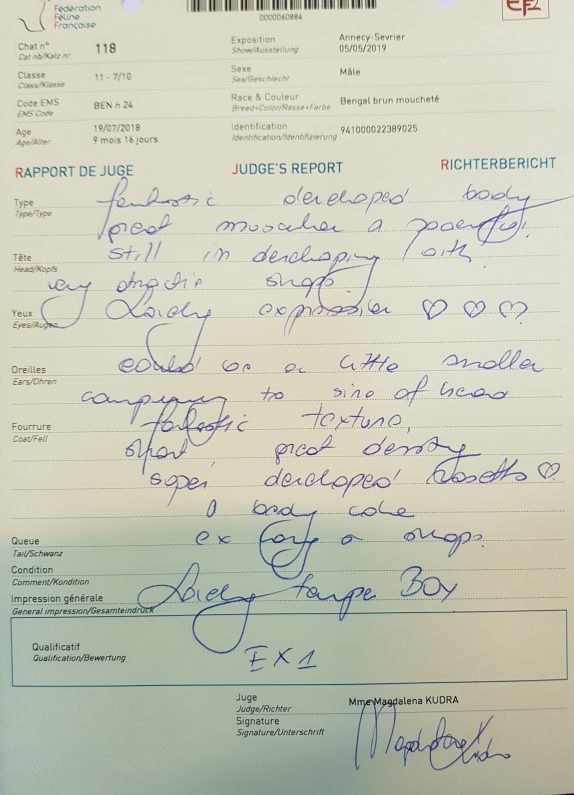 Fédération
Féline
Française
0000060884
Chat n° 118
Cat nb/Katz nr
Exposition Annecy-Sevrier
Show/Ausstellung 05/05/2019
Classe 11 - 7/10
Class/Klasse
Sexe Mâle
Sex/Geschlecht
Code EMS BEN n 24
EMS Code
Race & Couleur Bengal brun moucheté
Breed+Color/Rasse+Farbe
Age 19/07/2018
Age/Alter 9 mois 16 jours
Identification 941000022389025
Identification/Identifizierung
RAPPORT DE JUGE JUDGE'S REPORT RICHTERBERICHT
Type fantastic developed body
Type/Type great muscular a powerful!
Tête still in developing / with
Head/Kopfs very shape
Yeux expression ♡ ♡ ♡
Eyes/Augen
Oreilles could be a little smaller
Ears/Ohren
to size of head
Fourrure fantastic texture,
Coat/Fell short, great density
super developed Rosetts ♡
body
Queue ex a shape.
Tail/Schwanz
Condition
Comment/Kondition
Impression générale BOY
General impression/Gesamteindruck
Qualificatif
Qualification/Bewertung
EX 1
Juge Mme Magdalena KUDRA
Judge/Richter
Signature
Signature/Unterschrift